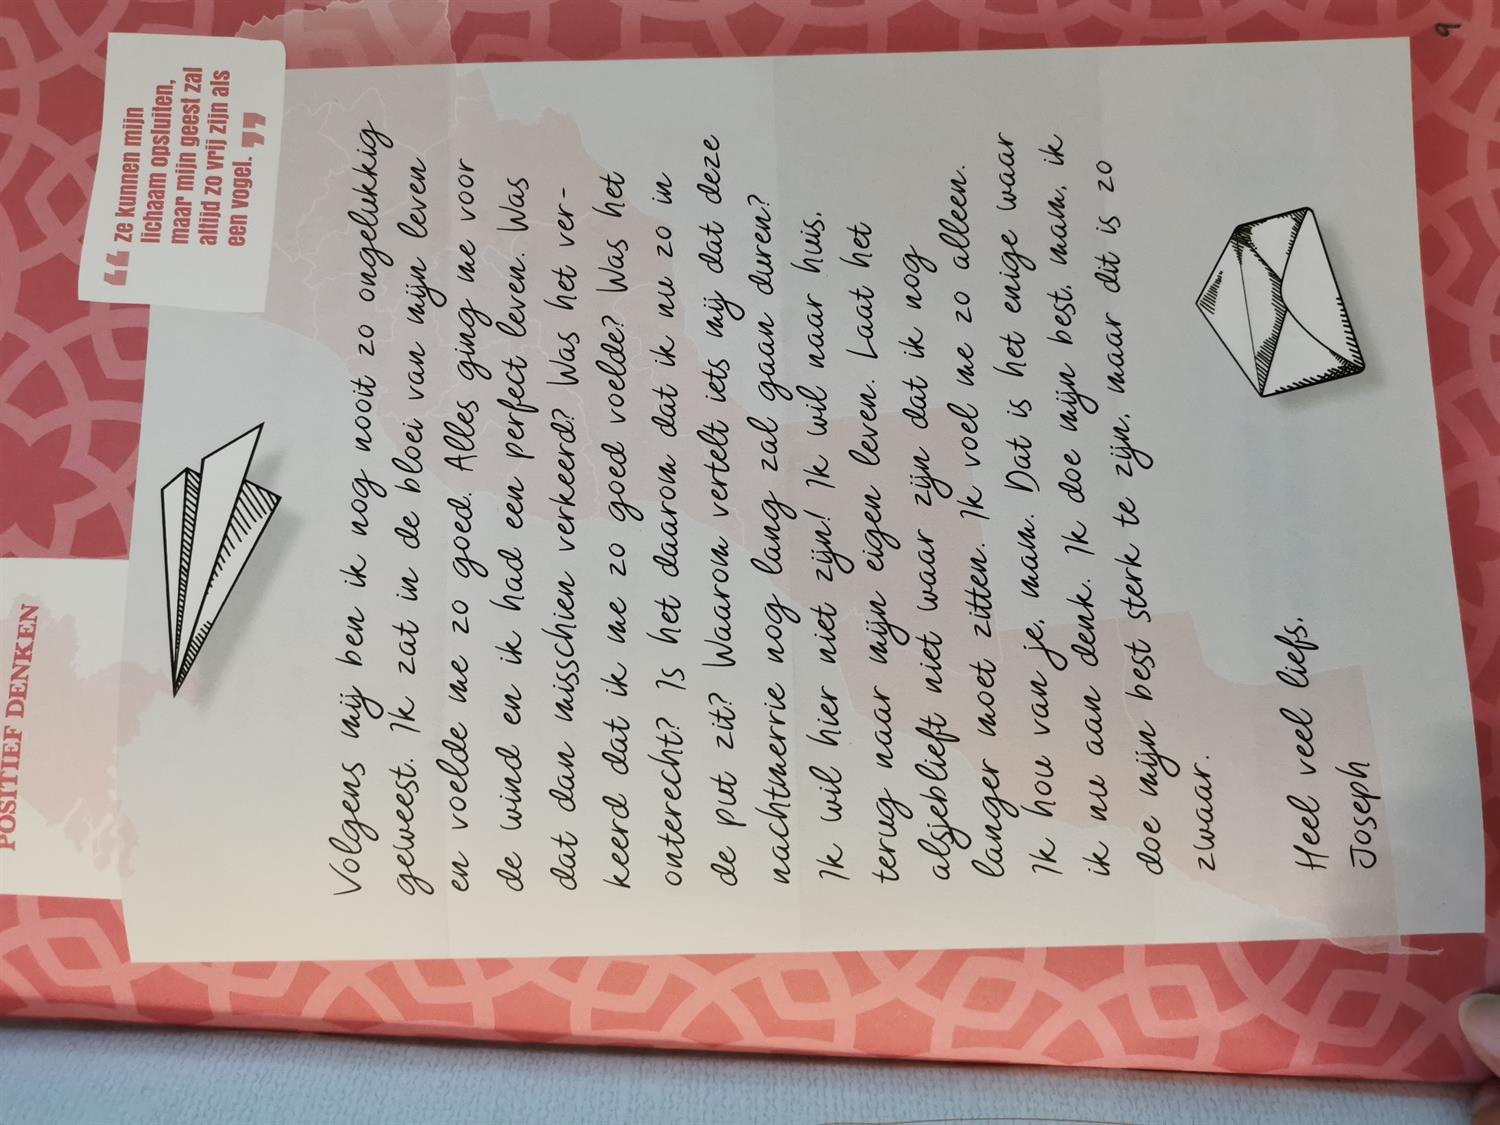 POSITIEF DENKEN
“ ze kunnen mijn
lichaam opsluiten,
maar mijn geest zal
altijd zo vrij zijn als
een vogel. ”
Volgens mij ben ik nog nooit zo ongelukkig
geweest. Ik zat in de bloei van mijn leven
en voelde me zo goed. Alles ging me voor
de wind en ik had een perfect leven. Was
dat dan misschien verkeerd? Was het ver-
keerd dat ik me zo goed voelde? Was het
onterecht? Is het daarom dat ik nu zo in
de put zit? Waarom vertelt iets mij dat deze
nachtmerrie nog lang zal gaan duren?
Ik wil hier niet zijn! Ik wil naar huis,
terug naar mijn eigen leven. Laat het
alsjeblieft niet waar zijn dat ik nog
langer moet zitten. Ik voel me zo alleen.
Ik hou van je, mam. Dat is het enige waar
ik nu aan denk. Ik doe mijn best, mam, ik
doe mijn best sterk te zijn, maar dit is zo
zwaar.
Heel veel liefs,
Joseph
9